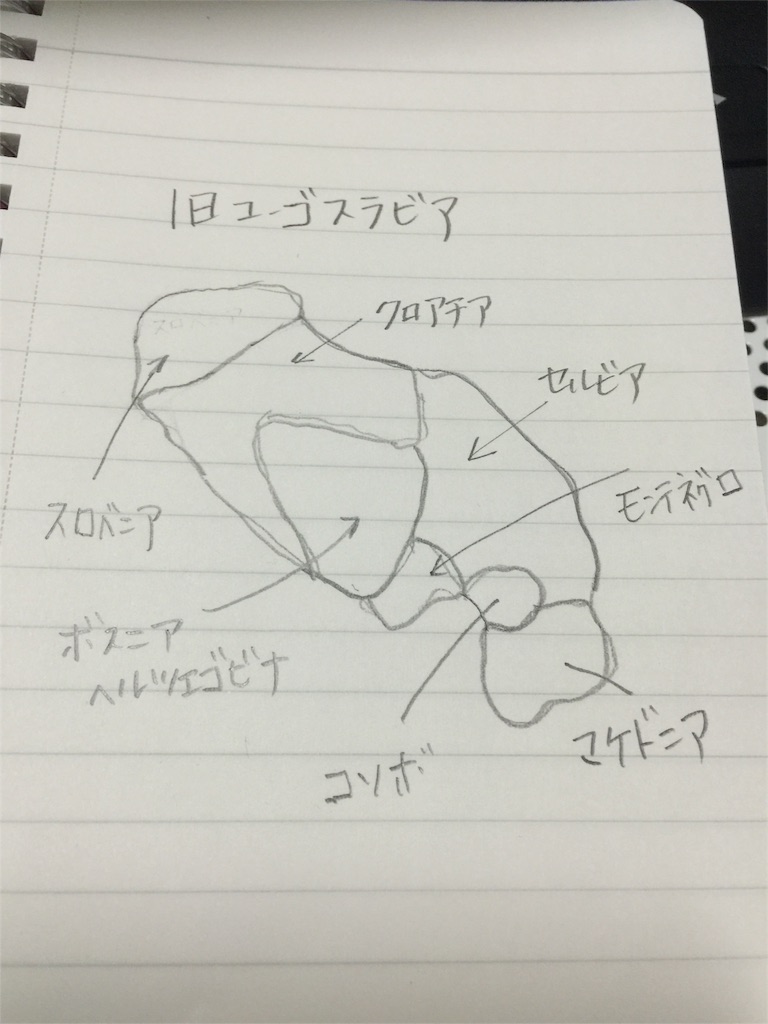 旧ユーゴスラビア
クロアチア
セルビア
モンテネグロ
スロベニア
ボスニア
ヘルツェゴビナ
コソボ
マケドニア